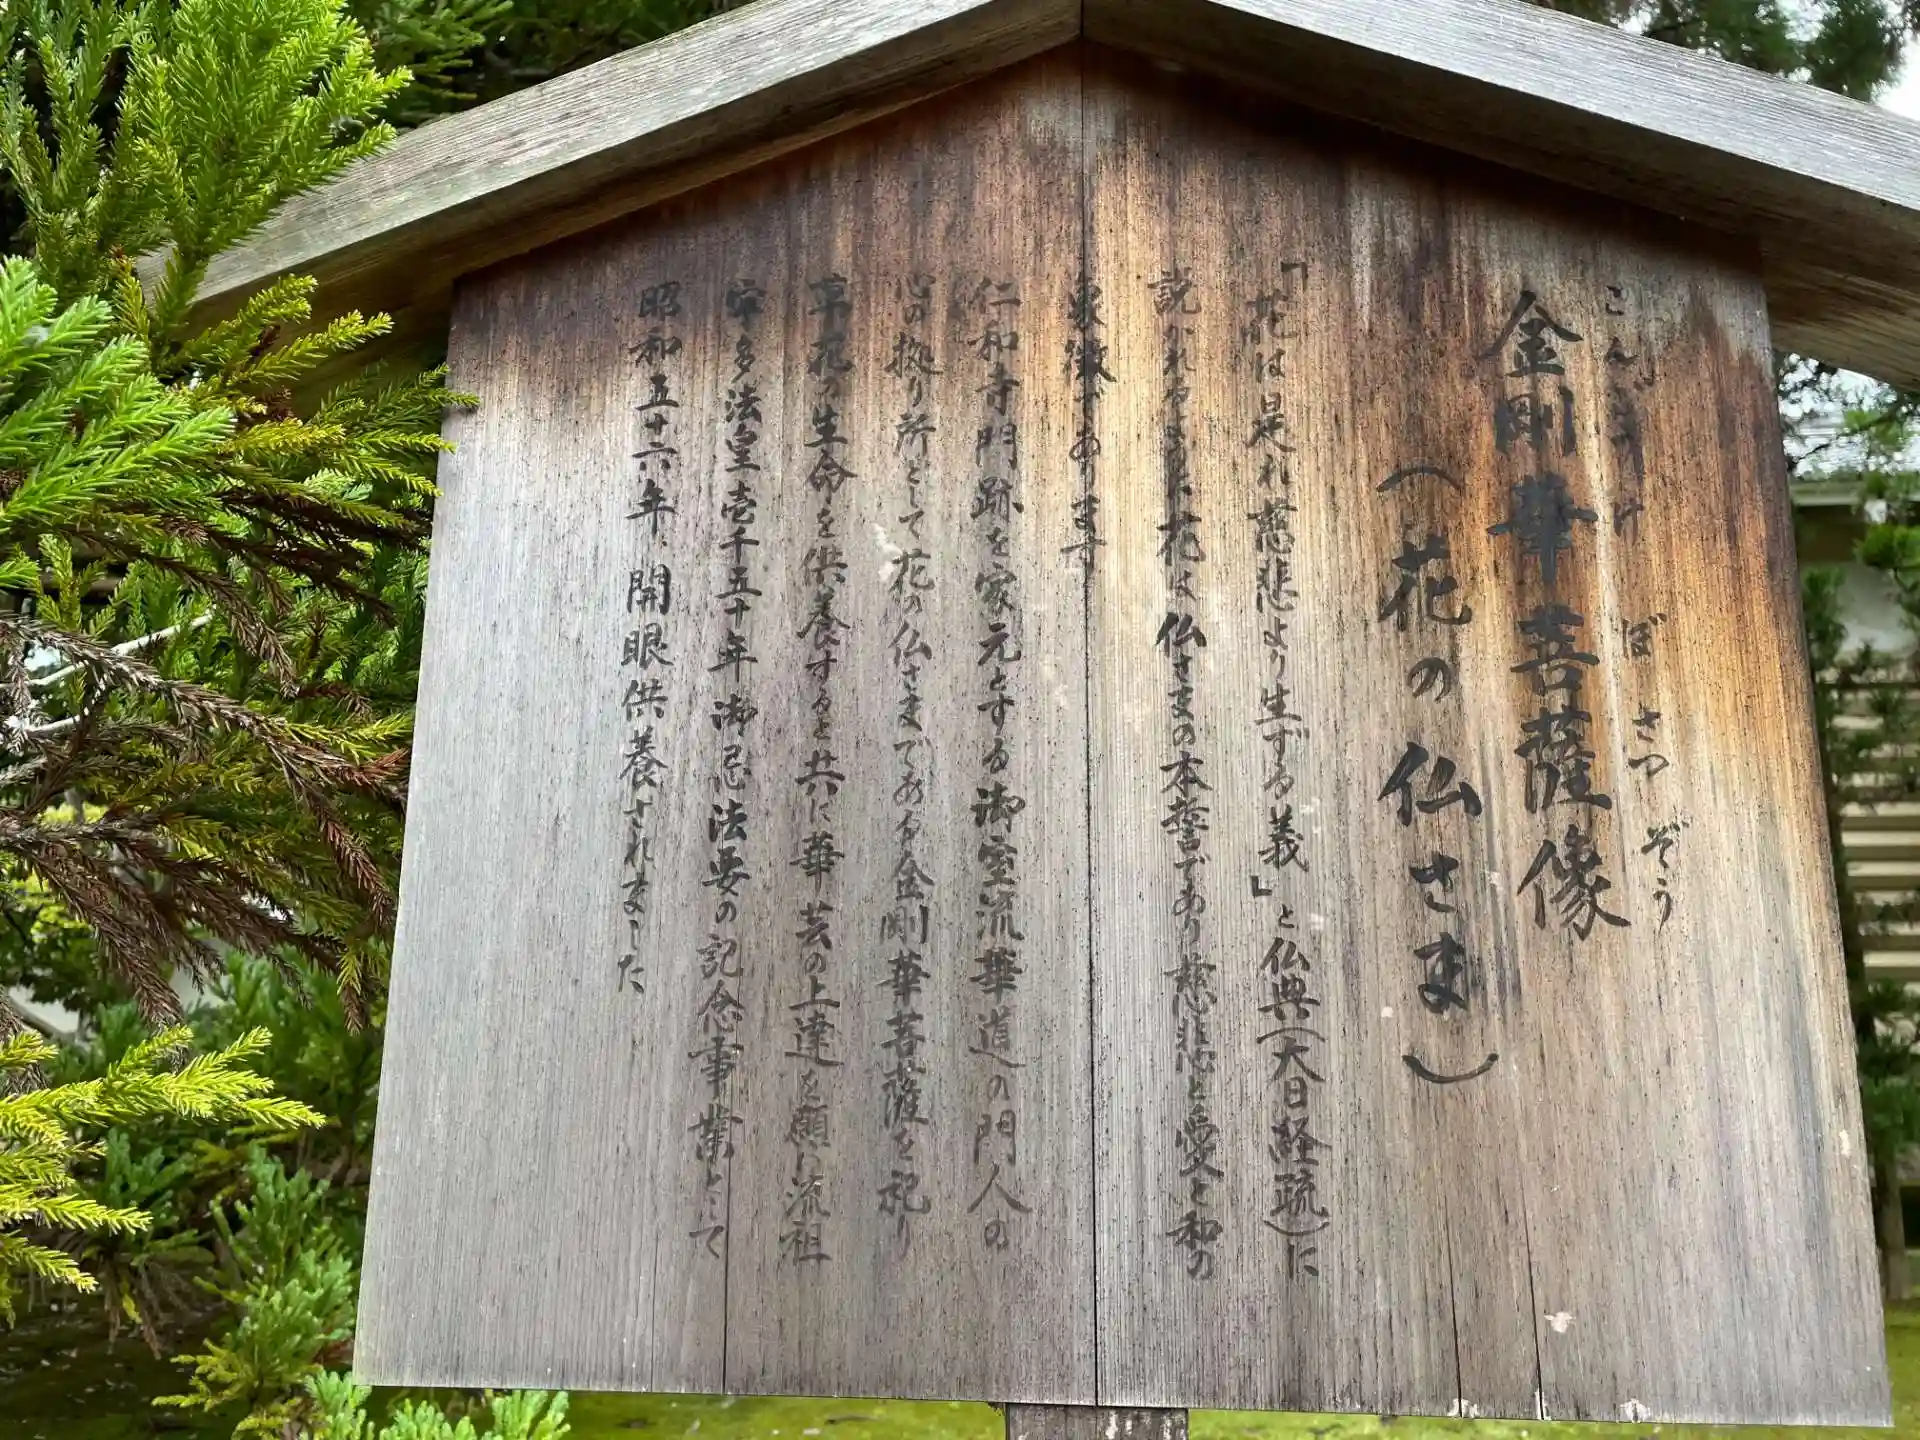 こんごうけ ぼさつぞう
金剛華菩薩像
（花の仏さま）
「花は是れ慈悲より生ずる義」と仏典（大日経疏）に
説かれるように花は仏さまの本誓であり慈悲と愛と和の
象徴であります
仁和寺門跡を家元とする御室流華道の門人の
心の拠り所として花の仏さまである金剛華菩薩を祀り
草花の生命を供養すると共に華芸の上達を願い流祖
宇多法皇壱千五十年御忌法要の記念事業として
昭和五十六年、開眼供養されました